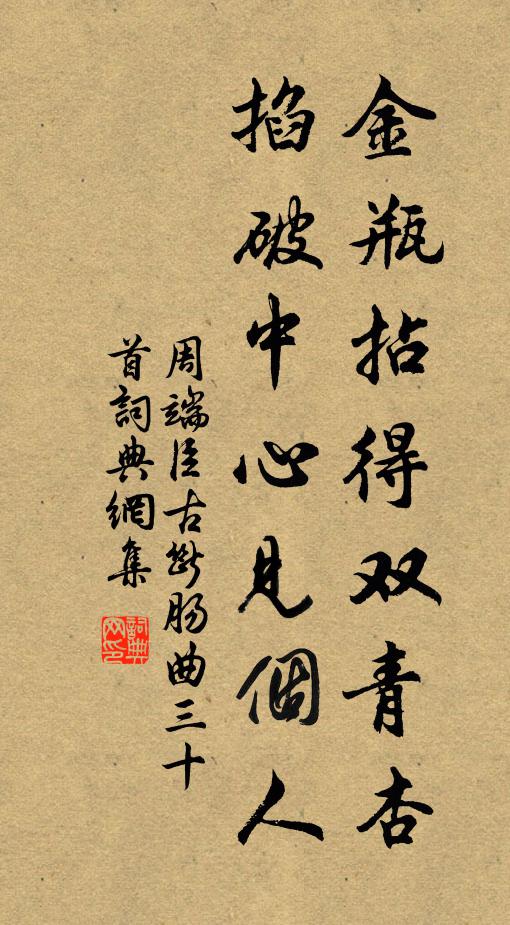 金瓶拈得双青杏
掐破中心見個人
周端臣古断肠曲三十
首詞典網集
詞典网印